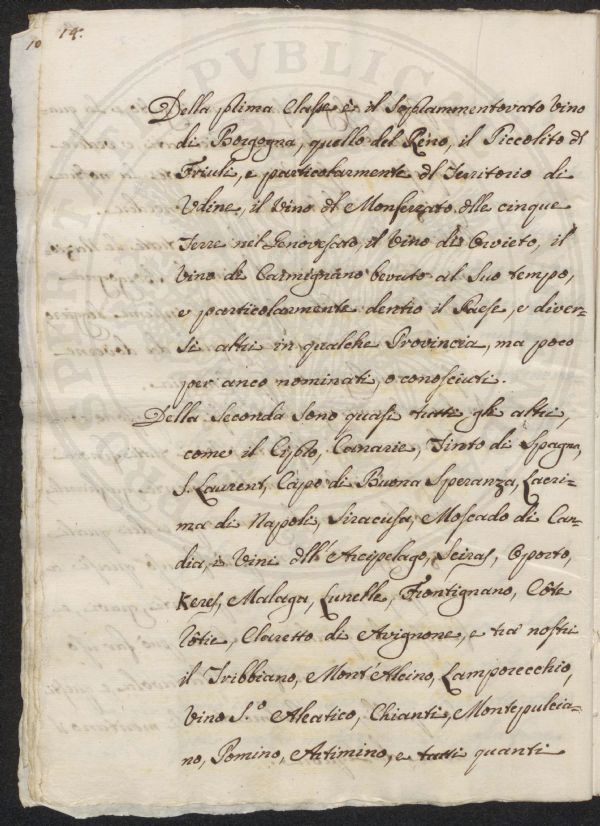 10
14.
Della prima Classe è il soprammentovato Vino
di Borgogna, quello del Reno, il Piccolito del
Friuli, e particolarmente del Territorio di
Udine, il Vino del Monferrato, delle cinque
Terre nel Genovesato, il Vino di Orvieto, il
Vino di Carmignano bevuto al suo tempo,
e particolarmente dentro il Paese, e diver-
si altri in qualche Provincia, ma poco
per anco nominati, o conosciuti.
Della Seconda sono quasi tutti gli altri,
come il Cipro, Canarie, Tinto di Spagna,
S. Laurent, Capo di Buona Speranza, Lacri-
ma di Napoli, Siracusa, Moscado di Can-
dia, i Vini dell'Arcipelago, Oporto,
Keres, Malaga, Lunelle, Frontignano, Côte
Rôtie, Claretto di Avignone, e tra' nostri
il Tribbiano, Mont'Alcino, Lamporecchio,
Vino S.º Aleatico, Chianti, Montepulcia-
no, Pomino, Artimino, e tutti quanti